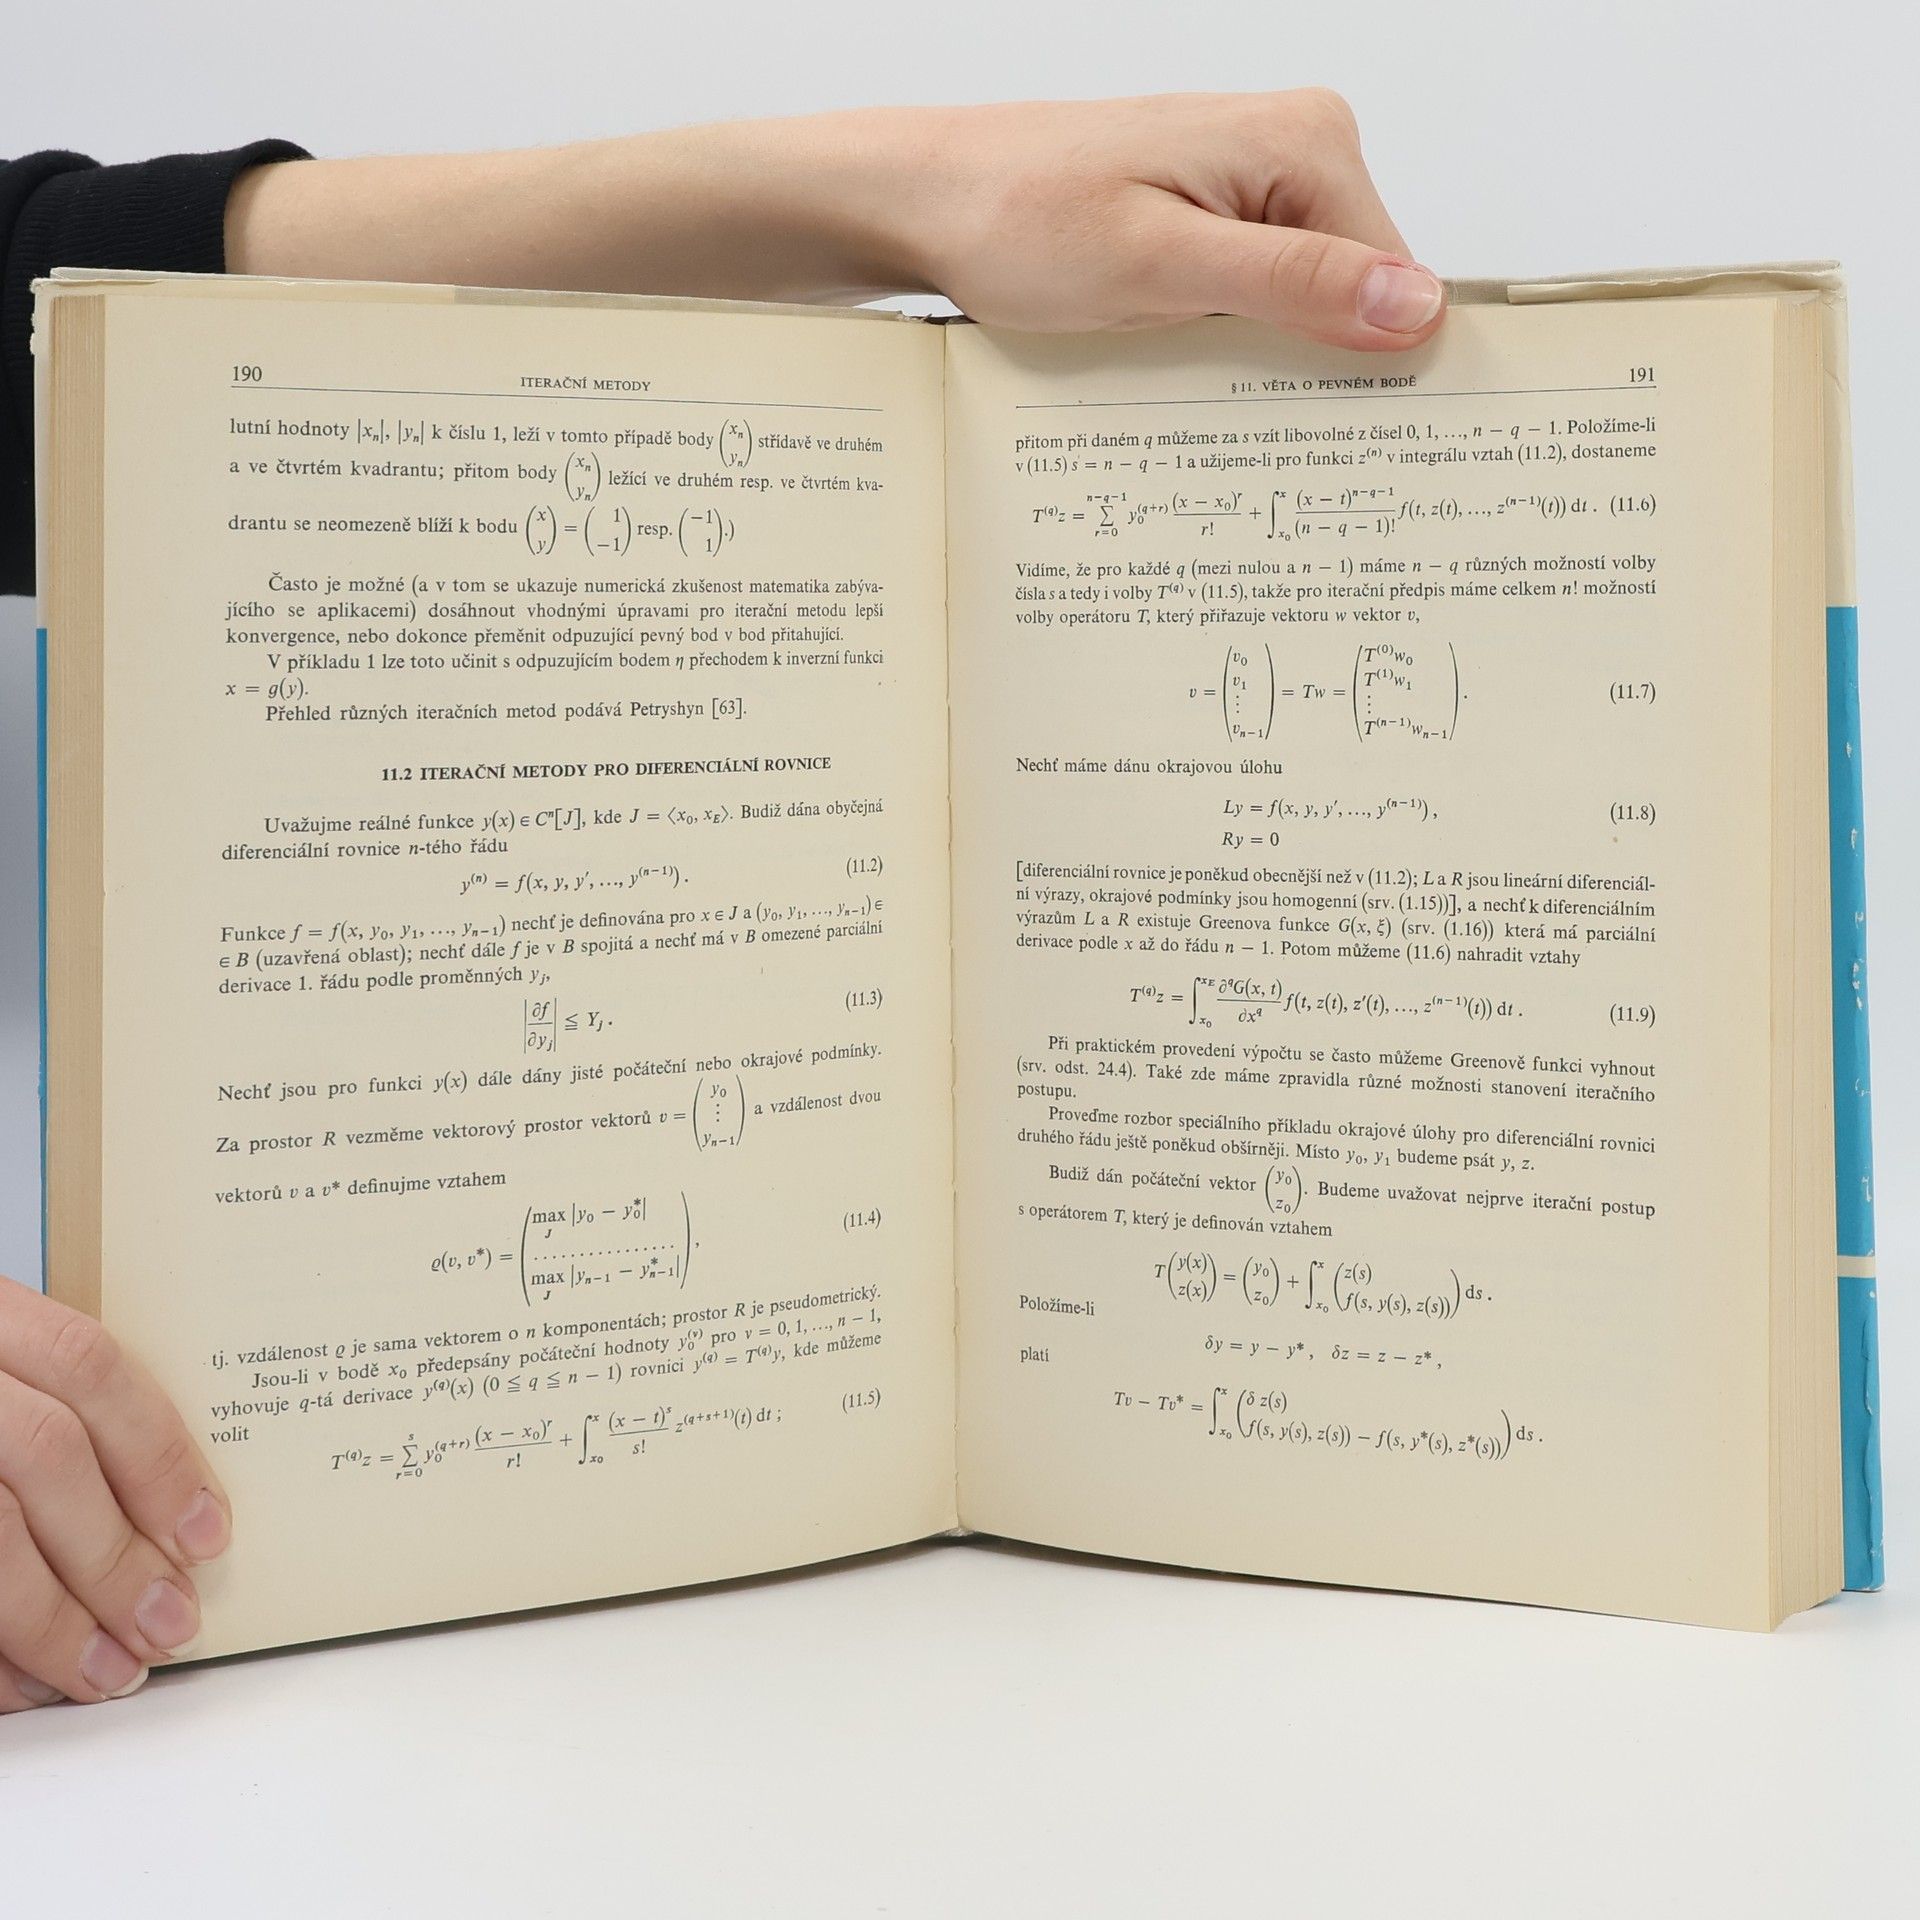 190
ITERAČNÍ METODY
lutní hodnoty |xₙ|, |yₙ| k číslu 1, leží v tomto případě body (xₙ yₙ) střídavě ve druhém
a ve čtvrtém kvadrantu; přitom body (xₙ yₙ) ležící ve druhém resp. ve čtvrtém kva-
drantu se neomezeně blíží k bodu (x y) = (1 −1) resp. (−1 1).)
Často je možné (a v tom se ukazuje numerická zkušenost matematika zabýva-
jícího se aplikacemi) dosáhnout vhodnými úpravami pro iterační metodu lepší
konvergence, nebo dokonce přeměnit odpuzující pevný bod v bod přitahující.
V příkladu 1 lze toto učinit s odpuzujícím bodem η přechodem k inverzní funkci
x = g(y).
Přehled různých iteračních metod podává Petryshyn [63].
11.2 ITERAČNÍ METODY PRO DIFERENCIÁLNÍ ROVNICE
Uvažujme reálné funkce y(x) ∈ Cⁿ[J], kde J = ⟨x₀, x_E⟩. Budiž dána obyčejná
diferenciální rovnice n-tého řádu
y⁽ⁿ⁾ = f(x, y, y′, ..., y⁽ⁿ⁻¹⁾). (11.2)
Funkce f = f(x, y₀, y₁, ..., yₙ₋₁) nechť je definována pro x ∈ J a (y₀, y₁, ..., yₙ₋₁) ∈
∈ B (uzavřená oblast); nechť dále f je v B spojitá a nechť má v B omezené parciální
derivace 1. řádu podle proměnných yⱼ,
|∂f/∂yⱼ| ≦ Yⱼ. (11.3)
Nechť jsou pro funkci y(x) dále dány jisté počáteční nebo okrajové podmínky.
Za prostor R vezměme vektorový prostor vektorů v = (y₀ ⋮ yₙ₋₁) a vzdálenost dvou
vektorů v a v* definujme vztahem
ϱ(v, v*) = (max_J |y₀ − y₀*| ................ max_J |yₙ₋₁ − y*ₙ₋₁|), (11.4)
tj. vzdálenost ϱ je sama vektorem o n komponentách; prostor R je pseudometrický.
Jsou-li v bodě x₀ předepsány počáteční hodnoty y₀⁽ᵛ⁾ pro v = 0, 1, ..., n − 1,
vyhovuje q-tá derivace y⁽q⁾(x) (0 ≦ q ≦ n − 1) rovnici y⁽q⁾ = T⁽q⁾y, kde můžeme
volit
T⁽q⁾z = ∑_{r=0}^{s} y₀^{(q+r)} (x − x₀)^r / r! + ∫_{x₀}^{x} (x − t)^s / s! z^{(q+s+1)}(t) dt; (11.5)
§ 11. VĚTA O PEVNÉM BODĚ
191
přitom při daném q můžeme za s vzít libovolné z čísel 0, 1, ..., n − q − 1. Položíme-li
v (11.5) s = n − q − 1 a užijeme-li pro funkci z⁽ⁿ⁾ v integrálu vztah (11.2), dostaneme
T⁽q⁾z = ∑_{r=0}^{n−q−1} y₀^{(q+r)} (x − x₀)^r / r! + ∫_{x₀}^{x} (x − t)^{n−q−1} / (n − q − 1)! f(t, z(t), ..., z⁽ⁿ⁻¹⁾(t)) dt. (11.6)
Vidíme, že pro každé q (mezi nulou a n − 1) máme n − q různých možností volby
čísla s a tedy i volby T⁽q⁾ v (11.5), takže pro iterační předpis máme celkem n! možností
volby operátoru T, který přiřazuje vektoru w vektor v,
v = (v₀ v₁ ⋮ vₙ₋₁) = Tw = (T⁽⁰⁾w₀ T⁽¹⁾w₁ ⋮ T⁽ⁿ⁻¹⁾wₙ₋₁). (11.7)
Nechť máme dánu okrajovou úlohu
Ly = f(x, y, y′, ..., y⁽ⁿ⁻¹⁾), (11.8)
Ry = 0
[diferenciální rovnice je poněkud obecnější než v (11.2); L a R jsou lineární diferenciál-
ní výrazy, okrajové podmínky jsou homogenní (srv. (1.15))], a nechť k diferenciálním
výrazům L a R existuje Greenova funkce G(x, ξ) (srv. (1.16)) která má parciální
derivace podle x až do řádu n − 1. Potom můžeme (11.6) nahradit vztahy
T⁽q⁾z = ∫_{x₀}^{x_E} ∂^q G(x, t)/∂x^q f(t, z(t), z′(t), ..., z⁽ⁿ⁻¹⁾(t)) dt. (11.9)
Při praktickém provedení výpočtu se často můžeme Greenově funkci vyhnout
(srv. odst. 24.4). Také zde máme zpravidla různé možnosti stanovení iteračního
postupu.
Proveďme rozbor speciálního příkladu okrajové úlohy pro diferenciální rovnici
druhého řádu ještě poněkud obšírněji. Místo y₀, y₁ budeme psát y, z.
Budiž dán počáteční vektor (y₀ z₀). Budeme uvažovat nejprve iterační postup
s operátorem T, který je definován vztahem
T(y(x) z(x)) = (y₀ z₀) + ∫_{x₀}^{x} (z(s) f(s, y(s), z(s))) ds.
Položíme-li
δy = y − y*, δz = z − z*,
platí
Tv − Tv* = ∫_{x₀}^{x} (δ z(s) f(s, y(s), z(s)) − f(s, y*(s), z*(s))) ds.